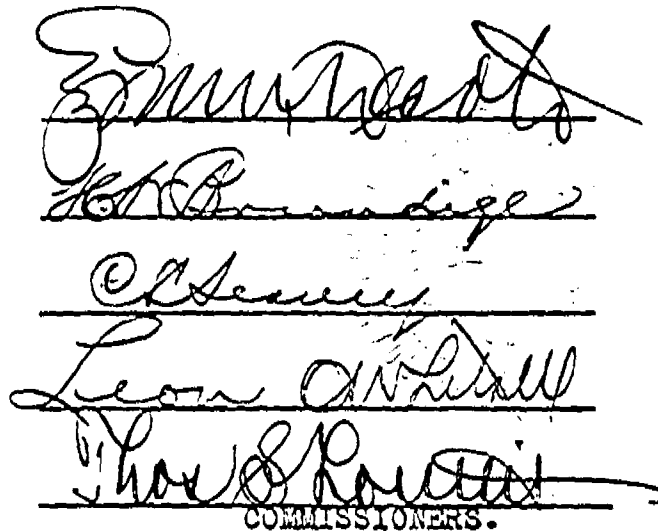 Ezra W Decoto
H W Brundige
C L Seavey
Leon O Whitsell
Thos S Louttit
COMMISSIONERS.